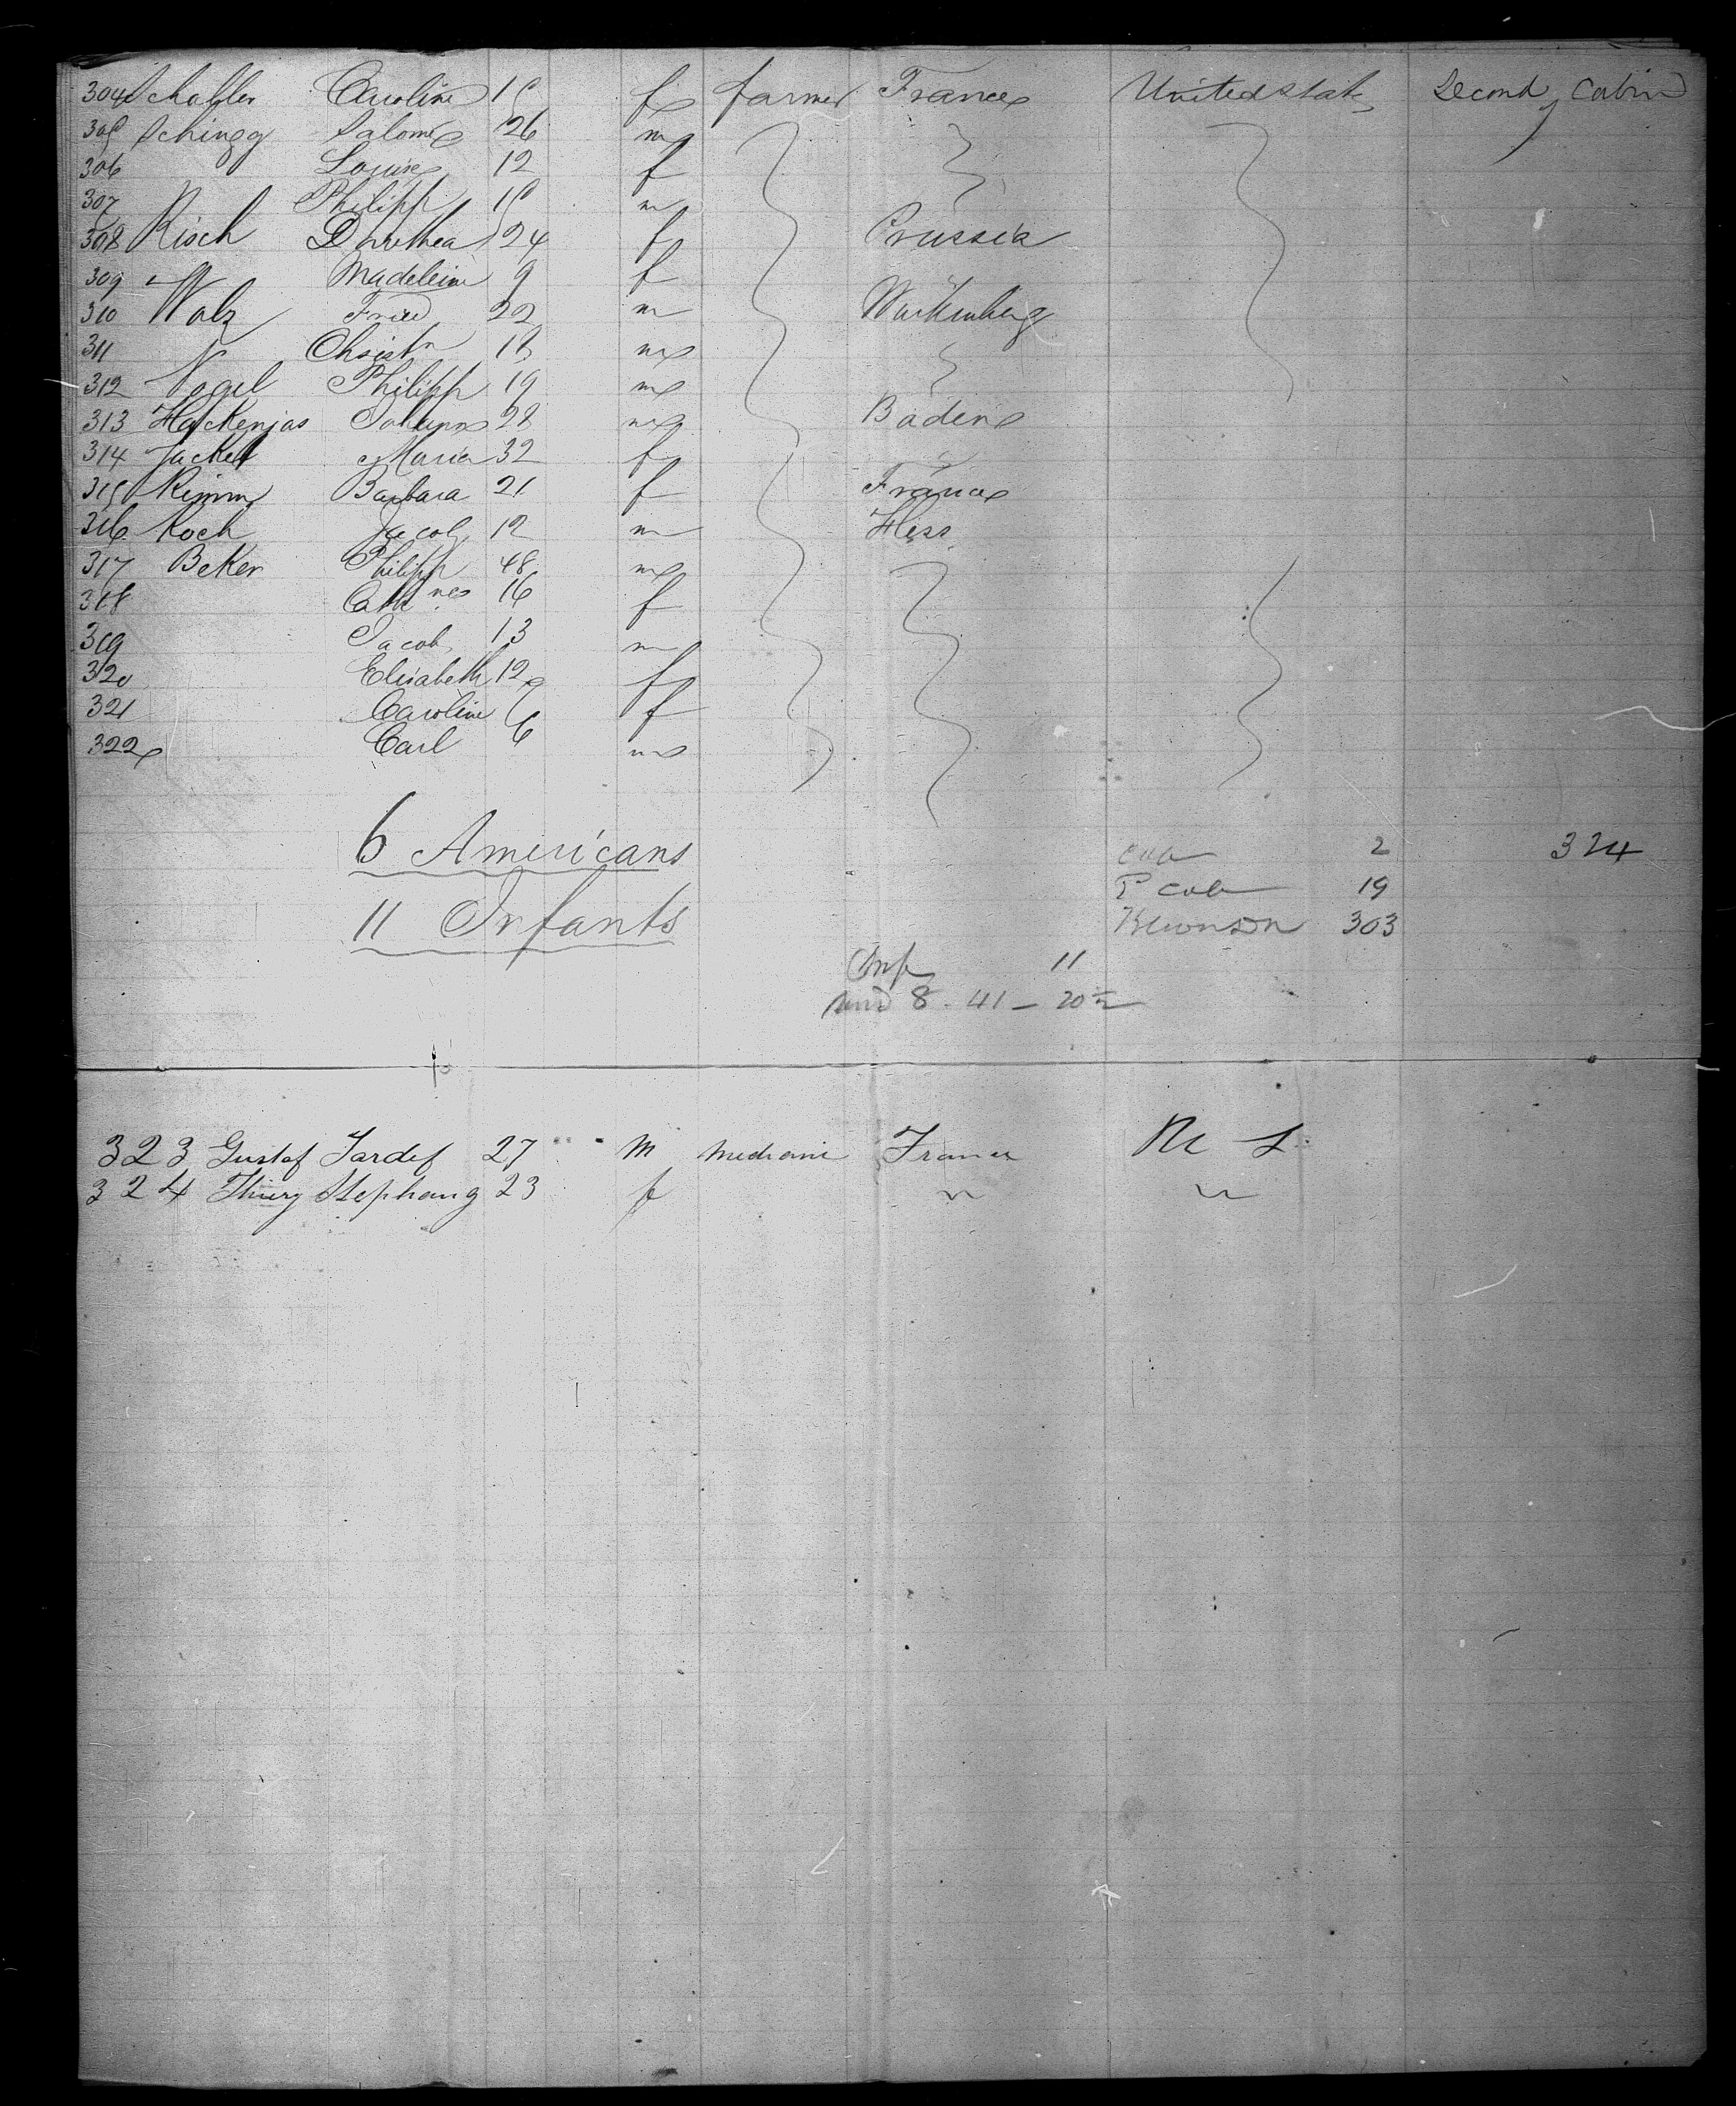 304 Schaller Caroline f farmer France United Stat Second Cabin
305 Schingg Salome 26 m
306 Louise 12 f
307 Philipp m
308 Risch Dorothea 24 f Prussia
309 " Madeleine 9 f
310 Walz Fried 22 m Wurttemberg
311 Christn 18 m
312 Vogel Philipp 19 m
313 Hackenjos Johann 28 m Baden
314 Jackel Maria 32 f
315 Kimm Barbara 21 f France
316 Koch Jacob 12 m Hess
317 Beker Philipp 48 m
318 Cathnes 16 f
319 Jacob 13 m
320 Elisabeth 12 f
321 Caroline f
322 Carl 6 m
6 Americans
cab 2 324
2d cab 19
11 Infants
303
Inf 11
8 - 41 - 20
323 Gustaf Tardef 27 m mechanic France
324 Thiery Stephany 23 f " "